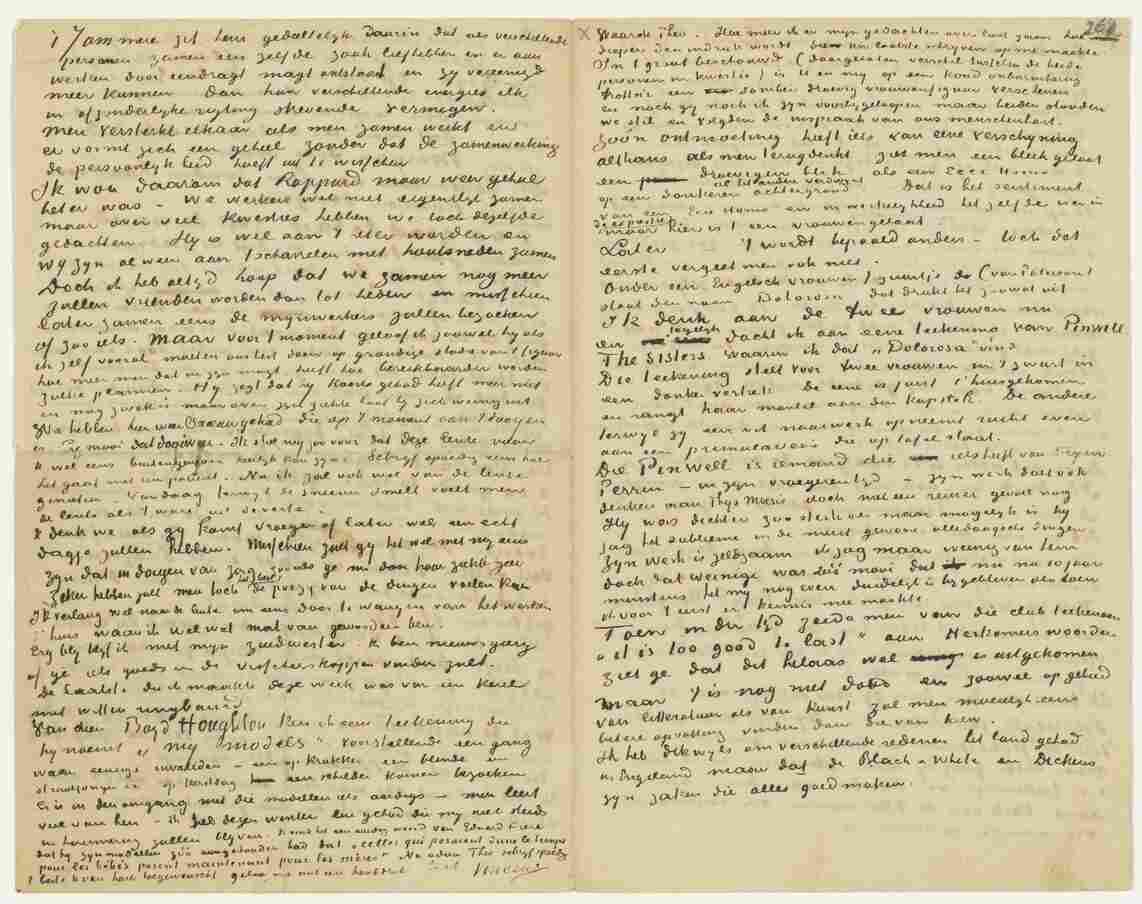 't Jammere zit hem gedeeltelijk daarin dat als verschillende
personen zamen een zelfde zaak liefhebben en er aan
werken door eendragt magt ontstaat en zij vereenigd
meer kunnen dan hun verschillende energies elk
in afzonderlijke rigting strevende vermogen.
Men versterkt elkaar als men zamen werkt en
er vormt zich een geheel zonder dat de zamenwerking
de persoonlijkheid hoeft uit te wisschen
Ik wou daarom dat Rappard maar weer geheel
beter was – we werken wel niet eigentlijk zamen
maar over veel kwesties hebben we toch dezelfde
gedachten. Hij is wel aan 't beter worden en
wij zijn al weer aan 't schavielen met houtsneden zamen
Doch ik heb altijd hoop dat we zamen nog meer
zullen vrienden worden dan tot heden en misschien
later zamen eens de mijnwerkers zullen bezoeken
of zoo iets. Maar voor 't moment geloof ik zoowel hij als
ik zelf vooral moeten aansterken door op grondige studie van 't figuur
hoe meer men dat in zijn magt heeft hoe bereikbaarder worden
zulke plannen. Hij zegt dat hij koorts gehad heeft maar niet
en nog zwak is maar over zijn ziekte laat hij zich weinig uit
We hebben hier weer sneeuw gehad die op 't moment aan 't dooijen
is. Zij mooi dat dooiweer. Ik stel mij zoo voor dat deze lente
ik wel eens buitengewoon heerlijk kan zijn. Schrijf spoedig eens hoe
het gaat met uw patient. Nu ik zal ook wel van de lente
genieten. Vandaag terwijl de sneeuw smelt voelt men
de lente als 't ware uit de verte.
Ik denk we als gij komt vroeger of later wel een echt
dagje zullen hebben. Misschien zult gij het wel met mij eens
zijn dat in dagen van zorg zooals ge nu door haar ziekte zeer
zeker hebben zult men toch het best de poezy van de dingen voelen kan
Ik verlang wel naar de lente om eens door te waaijen van het werken
in huis waar ik wel wat mat van geworden ben.
Erg blij blijf ik met mijn zuidwester. Ik ben nieuwsgierig
of ge iets goeds in de visscherskoppen vinden zult.
de laatste die ik maakte deze week was van een kerel
met witten ringbaard
Van dien Boyd Houghton ken ik eene teekening die
hij noemt „my models" voorstellende een gang
waar eenige invaliden – een op krukken een blinde een
straatjongen &c op Kerstdag een schilder komen bezoeken
Er is in den omgang met die modellen iets aardigs – men leert
veel van hen – ik heb dezen winter lui gehad die mij niet slecht
in herinnering zullen blijven. 't is een aardig woord van Edouard Frère
dat hij zijn modellen zoo aangehouden had dat „celles qui posaient dans le temps
pour les bébés posent maintenant pour les mères" Nu adieu Theo schrijf spoedig
't beste U van harte toegewenscht geloof me met een handdruk Vincent
268
Waarde Theo. Hoe meer ik er mijn gedachten over laat gaan hoe
dieper den indruk wordt dien uw laatste schrijven op me maakte.
In 't groot beschouwd (daargelaten verschil tusschen de beide
personen in kwestie) is U en mij op een koud onbarmhartig
trottoir een sombere droevig vrouwenfiguur verschenen
en noch gij noch ik zijn voorbijgeloopen maar beiden stonden
we stil en volgden de inspraak van ons menschenhart.
Zoo'n ontmoeting heeft iets van eene verschijning
althans als men terugdenkt ziet men een bleek gelaat
een droevigen blik als een Ecce Homo
op een donkeren achtergrond al het andere verdwijnt Dat is het sentiment
van een Ecce Homo en in werkelijkheid het zelfde van in
de expressie maar hier is 't een vrouwengelaat
Later 't wordt bepaald anders – toch dat
eerste vergeet men ook niet.
Onder een Engelsch vrouwenfiguurtje (van Paterson)
staat den naam Dolorosa dat drukt het zoowat uit
Ik denk aan de twee vrouwen nu
en tegelijk dacht ik aan eene teekening van Pinwell
The Sisters waarin ik dat „Dolorosa" vind
Die teekening stelt voor twee vrouwen in 't zwart in
een donker vertrek de eene is juist t'huisgekomen
en hangt haar mantel aan den kapstok. De andere
terwijl zij een wit naaiwerk opneemt ruikt even
aan een primulaveris die op tafel staat.
Die Pinwell is iemand die iets heeft van Feyen
Perrin – in zijn vroegeren tijd – zijn werk doet ook
denken aan Thijs Maris doch met een reiner gevoel nog
Hij was dichter zoo sterk als maar mogelijk is hij
zag het sublieme in de meest gewone alledaagsche dingen
Zijn werk is zeldzaam ik zag maar weinig van hem
doch dat weinige was zóó mooi dat nu na 10 jaar
minstens het mij nog even duidelijk is bijgebleven als toen
ik voor 't eerst er kennis mee maakte.
Toen in der tijd zeide men van die club teekenaars
„it is too good to last" aan Herkomer's woorden
ziet ge dat dit helaas wel is uitgekomen
maar 't is nog niet dood en zoowel op gebied
van litteratuur als van kunst zal men moeielijk eens
betere opvatting vinden dan die van hen.
Ik heb dikwijls om verschillende redenen het land gehad
in Engeland maar dat de Black & White en Dickens
zijn zaken die alles goed maken.